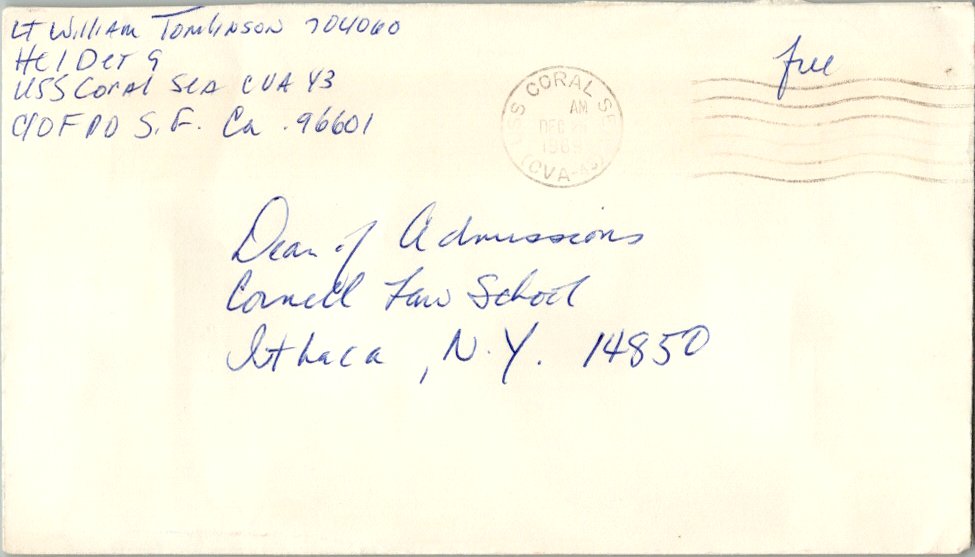 LT William Tomlinson 704060
HC1 Det 9
USS Coral Sea CVA 43
C/O FPO S.F. Ca. 96601
free
USS CORAL SEA
AM
DEC
196
(CVA-43)
Dean of Admissions
Cornell Law School
Ithaca, N.Y. 14850